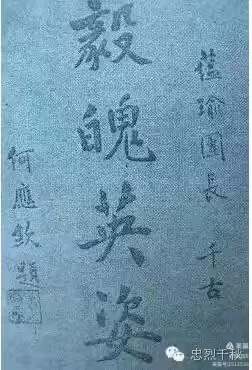 蕴瑜團長 千古
毅魄英姿
何應欽題
忠烈千秋